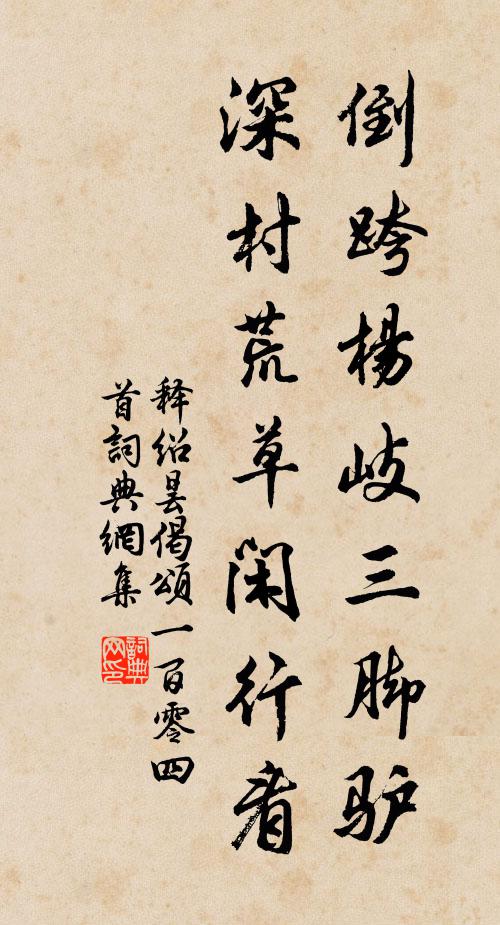 倒跨楊岐三脚驴
深村荒草闲行看
释绍昙偈頌一百零四
首詞典網集
詞典
网印